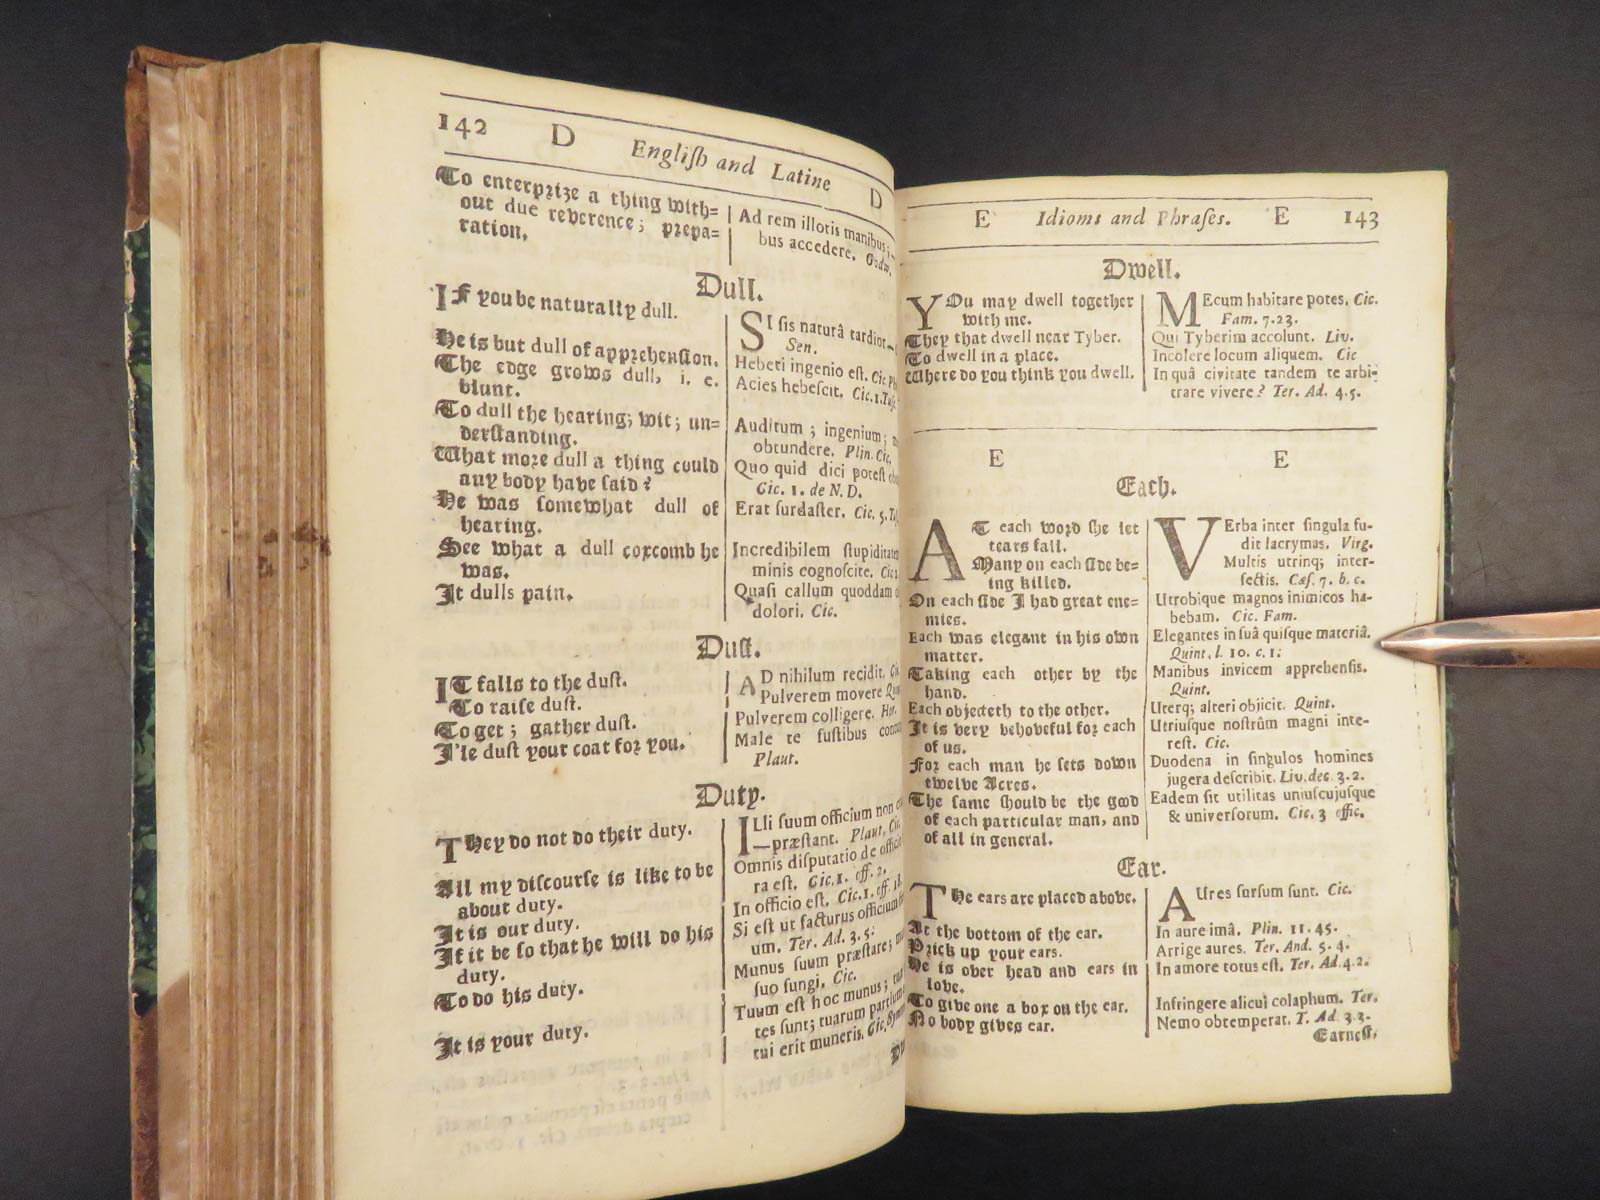 142 D Engliſh and Latine D
To enterprize a thing with=
out due reverence; prepa=
ration.
Ad rem illotis manibus;
bus accedere. Godw.
Dull.
IF you be naturally dull.
He is but dull of apprehenſion.
The edge grows dull, i. e.
blunt.
To dull the hearing; wit; un=
derſtanding.
What more dull a thing could
any body have ſaid?
He was ſomewhat dull of
hearing.
See what a dull coxcomb he
was.
It dulls pain.
SI ſis naturâ tardior—
Sen.
Hebeti ingenio eſt. Cic.
Acies hebeſcit. Cic. 1.
Auditum; ingenium;
obtundere. Plin. Cic.
Quo quid dici poteſt
Cic. 1. de N. D.
Erat ſurdaſter. Cic. 5.
Incredibilem ſtupiditatem
minis cognoſcite. Cic.
Quaſi callum quoddam
dolori. Cic.
Duſt.
IT falls to the duſt.
To raiſe duſt.
To get; gather duſt.
I'le duſt your coat for you.
AD nihilum recidit.
Pulverem movere
Pulverem colligere. Hor.
Male te fuſtibus
Plaut.
Duty.
They do not do their duty.
All my diſcourſe is like to be
about duty.
It is our duty.
If it be ſo that he will do his
duty.
To do his duty.
It is your duty.
ILli ſuum officium non
—præſtant. Plaut. Cic.
Omnis diſputatio de
ra eſt. Cic. 1. off. 2.
In officio eſt. Cic. 1. off.
Si eſt ut facturus officium
um. Ter. Ad. 3. 5.
Munus ſuum præſtare;
ſuo fungi. Cic.
Tuum eſt hoc munus;
tes ſunt; tuarum partium
tui erit muneris. Cic.
E Idioms and Phraſes. E 143
Dwell.
YOu may dwell together
with me.
They that dwell near Tyber.
To dwell in a place.
Where do you think you dwell.
MEcum habitare potes. Cic.
Fam. 7. 23.
Qui Tyberim accolunt. Liv.
Incolere locum aliquem. Cic
In quâ civitate tandem te arbi-
trare vivere? Ter. Ad. 4. 5.
E E
Each.
AT each word ſhe let
tears fall.
Many on each ſide be=
ing killed.
On each ſide I had great ene=
mies.
Each was elegant in his own
matter.
Taking each other by the
hand.
Each objecteth to the other.
It is very behoveful for each
of us.
For each man he ſets down
twelve Acres.
The ſame ſhould be the good
of each particular man, and
of all in general.
VErba inter ſingula fu-
dit lacrymas. Virg.
Multis utrinq; inter-
fectis. Cæſ. 7. b. c.
Utrobique magnos inimicos ha-
bebam. Cic. Fam.
Elegantes in ſuâ quiſque materiâ.
Quint. l. 10. c. 1.
Manibus invicem apprehenſis.
Quint.
Uterq; alteri objicit. Quint.
Utriuſque noſtrûm magni inte-
reſt. Cic.
Duodena in ſingulos homines
jugera deſcribit. Liv. dec. 3. 2.
Eadem ſit utilitas uniuſcujuſque
& univerſorum. Cic. 3 offic.
Ear.
The ears are placed above.
At the bottom of the ear.
Prick up your ears.
He is over head and ears in
love.
To give one a box on the ear.
No body gives ear.
AUres ſurſum ſunt. Cic.
In aure imâ. Plin. 11. 45.
Arrige aures. Ter. And. 5. 4.
In amore totus eſt. Ter. Ad. 4. 2.
Infringere alicui colaphum. Ter.
Nemo obtemperat. T. Ad. 3. 3.
Earneſt,